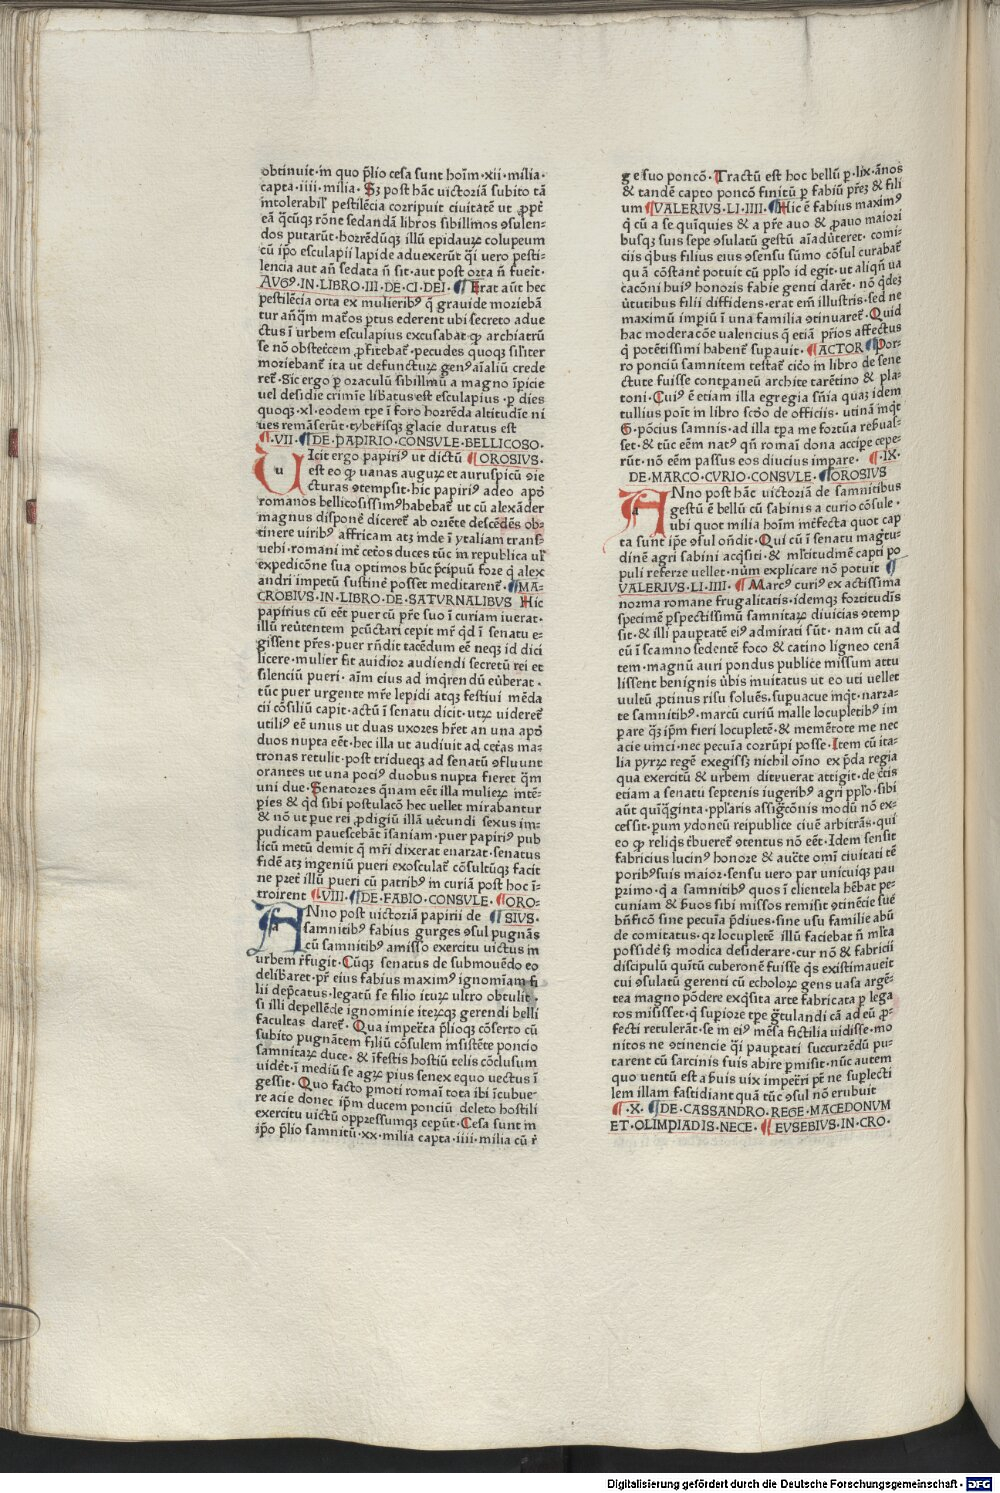 obtinuit·in quo p̄lio cesa sunt hoīm·xii·milia·
capta·iiii·milia· Sꝫ post hāc uictoriā subito tā
intolerabil' pestilēcia corripuit ciuitatē ut ꝓpt̄
eā q̄cūqꝫ rōne sedandā libros sibillinos ꝯsulen-
dos putarūt·horrēdūqꝫ illū epidaurꝫ colupeum
cū ip̄o esculapii lapide aduexerūt q̄i uero pesti-
lencia aut añ sedata ñ sit·aut post orta ñ fueit·
AVGꝰ·IN·LIBRO·III·DE·CI·DEI· ¶ Erat aūt hec
pestilēcia orta ex mulieribꝰ q̄ grauide moriebā
tur añq̄m mat̄os ꝑtus ederent ubi secreto adue
ctus ī urbem esculapius excusabat̄·ꝙ archiatrū
se nō obstetrcem ꝓfitebat̄·pecudes quoqꝫ sil'iter
moriebant̄ ita ut defuncturꝫ genꝰ aīaliū crede
ret̄·Sic ergo ꝑ oraculū sibillinū a magno īpicie
uel desidie crimīe libatus est esculapius·ꝑ dies
quoqꝫ·xl·eodem tꝑe ī foro horrēda altitudīe ni
ues remāserūt·tyberisqꝫ glacie duratus est
¶·VII·¶DE·PAPIRIO·CONSVLE·BELLICOSO·
UIcit ergo papiriꝰ ut dictū ¶OROSIVS·
est eo ꝙ uanas augurꝫ et auruspicū ꝯie
cturas ꝯtempsit·hic papiriꝰ adeo apō
romanos bellicosissimꝰhabebat̄ ut cū alexāder
magnus disponēs diceret̄ ab oriēte descēdēs ob-
tinere uiribꝰ affricam atqꝫ inde ī ytaliam transf
uehi·romani int̄ cet̄os duces tūc in republica ul'
expedicōne sua optimos hūc p̄cipuū fore q̄ alex
andri impetū sustinē posset meditarent̄·¶MA-
CROBIVS·IN·LIBRO·DE·SATVRNALIBVS Hic
papirius cū eēt puer cū pr̄e suo ī curiam iuerat·
illū reūtentem ꝑcūctari cepit mr̄ qd ī senatu e-
gissent pr̄es·puer rn̄dit tacēdum eē neqꝫ id dici
licere·mulier fit auidior audiendi secretū rei et
silenciū pueri·aīm eius ad inq̄rendū eūberat·
tūc puer urgente mr̄e lepidi atqꝫ festiui mēda
cii cōsiliū capit·actū ī senatu dicit·utrꝫ uideret̄
utiliꝰ eē unus ut duas uxores hr̄et an una apō
duos nupta eēt·hec illa ut audiuit ad cet̄as ma-
tronas retulit·post tridueqꝫ ad senatū ꝯfluunt
orantes ut una pociꝰ duobus nupta fieret q̄m
uni due·Senatores q̄nam eēt illa mulierꝫ intē-
pies & qd sibi postulacō hec uellet mirabantur
& nō ut pue rei ꝓdigiū illā uēcundi sexus im-
pudicam pauescebāt īsaniam·puer papiriꝰ pub
licū metū demit q̄ mr̄i dixerat enarrat·senatus
fidē atqꝫ ingeniū pueri exosculat̄ cōsultūqꝫ facit
ne pret̄ illū pueri cū patribꝰ in curiā post hoc ī-
troirent ¶VIII·¶DE·FABIO·CONSVLE·¶ORO-
ANno post uictoriā papirii de ¶SIVS·
samnitibꝰ fabius gurges ꝯsul pugnās
cū samnitibꝰ amisso exercitu uictus in
urbem r̄fugit·Cūqꝫ senatus de submouēdo eo
delib̄aret·pr̄ eius fabius maximꝰ ignomīam fi
lii dep̄catus·legatū se filio iturꝫ ultro obtulit·
si illi depellēde ignominie iterꝫqꝫ gerendi belli
facultas daret̄·Qua impet̄ta p̄lioqꝫ cōserto cū
subito pugnātem filiū cōsulem insistēte poncio
samnitarꝫ duce·& īfestis hostiū telis cōclusum
uidēt·ī mediū se agꝫ pius senex equo uectus ī
gessit·Quo facto ꝑmoti romai tota ibi īcubue-
re acie donec ip̄m ducem ponciū deleto hostili
exercitu uictū oppressumqꝫ cepūt·Cesa sunt in
ip̄o p̄lio samnitū·xx·milia capta·iiii·milia cū r̄
ge suo poncō·Tractū est hoc bellū ꝑ·lix·ānos
& tandē capto poncō finitū ꝑ fabiū pr̄eꝫ & fili
um ¶VALERIVS·LI·IIII·¶Hic ē fabius maximꝰ
q̄ cū a se quīquies & a pr̄e auo & ꝓauo maiori
busqꝫ suis sepe ꝯsulatū gestū aīaduteret·comi-
ciis qbus filius eius ꝯsensu sūmo cōsul curabat̄
quā cōstant̄ potuit cū ppl'o id egit·ut aliqñ ua
cacōni huiꝰ honoris fabie genti daret̄·nō q̄deꝫ
ūtutibus filii diffidens·erat em̄ illustris·sed ne
maximū imꝑiū ī una familia ꝯtinuaret̄·Quid
hac moderacōe valencius q̄ etiā pr̄ios affectus
q̄ potētissimi habent̄ supauit·¶ACTOR¶Por-
ro ponciū samnitem testat̄ cic̄o in libro de sene
ctute fuisse contꝑaneū archite tarētino & pla-
toni·Cuiꝰ ē etiam illa egregia sn̄ia quaꝫ idem
tullius poit̄ in libro scd̄o de officiis·utinā inq̄t
G·pōcius samnis·ad illa tꝑa me fortūa reb̄uas-
set·& tūc eēm natꝰ qñ romaī dona accipe cepe-
rūt·nō eēm passus eos diucius impare· ¶·IX·
DE·MARCO·CVRIO·CONSVLE·¶OROSIVS
ANno post hāc uictoriā de samnitibus
gestū ē bellū cū sabinis a curio cōsule·
ubi quot milia hoīm int̄fecta quot cap
ta sunt ip̄e ꝯsul on̄dit·Qui cū ī senatu mag̃tu-
dinē agri sabini acq̄siti·& ml'titudinē capti po
puli referre uellet·nūm explicare nō potuit ¶
VALERIVS·LI·IIII·¶Marcꝰ curiꝰ ex actissima
norma romane frugalitatis·idemqꝫ fortitudīs
specimē ꝑspectissimū samnitarꝫ diuicias ꝯtemp
sit·& illi pauꝑtatē eiꝰ admirati sūt·nam cū ad
eū ī scamno sedentē foco & catino ligneo cenā
tem·magnū auri pondus publice missum attu
lissent benignis ūbis inuitatus ut eo uti uellet
uultū ꝓtinus risu soluēs·supuacue inq̄t·narra-
te samnitibꝰ·marcū curiū malle locupletibꝰ im
pare q̄ꝫ ip̄m fieri locupletē·& memētote me nec
acie uinci·nec pecuīa corrūpi posse·Item cū ita-
lia pyrrꝫ regē exegissꝫ nichil oīno ex p̄da regia
qua exercitū & urbem ditūerat attigit·de c̄tis
etiam a senatu septenis iugeribꝰ agri ppl'o·sibi
aūt quīq̄ginta·ppl'aris assig̃cōnis modū nō ex-
cessit·pum ydoneū reipublice ciuē arbitrās·qui
eo ꝙ reliq̄s tb̄ueret̄ ꝯtentus nō eēt·Idem sensit
fabricius lucinꝰ honore & auc̄te omī ciuitati tē
poribꝰsuis maior·sensu uero par unicuiqꝫ pau
ꝑrimo·q̄ a samnitibꝰ quos ī clientela hēbat pe-
cuniam & b̄uos sibi missos remisit ꝯtinēcie sue
bn̄ficō sine pecuīa p̄diues·sine usu familie abū
de comitatus·qꝫ locupletē illū faciebat ñ ml'ta
possidē sꝫ modica desiderare·cur nō & fabricii
discipulū quītū cuberonē fuisse q̄s existimaueit
cui ꝯsulatū gerenti cū echolorꝫ gens uasa argē-
tea magno pōdere exq̄sita arte fabricata p lega
tos misisset·q̄ supiore tꝑe g̃tulandi cā ad eū ꝓ-
fecti retulerāt·se in eiꝰ mēsa fictilia uidisse·mo
nitos ne ꝯtinencie q̄i pauꝑtati succurrēdū pu-
tarent cū sarcinis suis abire ꝑmisit·nūc autem
quo uentū est a b̄uis uix impet̄ri pr̄ ne suplecti
lem illam fastidiant quā tūc ꝯsul nō erubuit
¶·X·¶DE·CASSANDRO·REGE·MACEDONVM
ET·OLIMPIADIS·NECE·¶EVSEBIVS·IN·CRO·
Digitalisierung gefördert durch die Deutsche Forschungsgemeinschaft - DFG